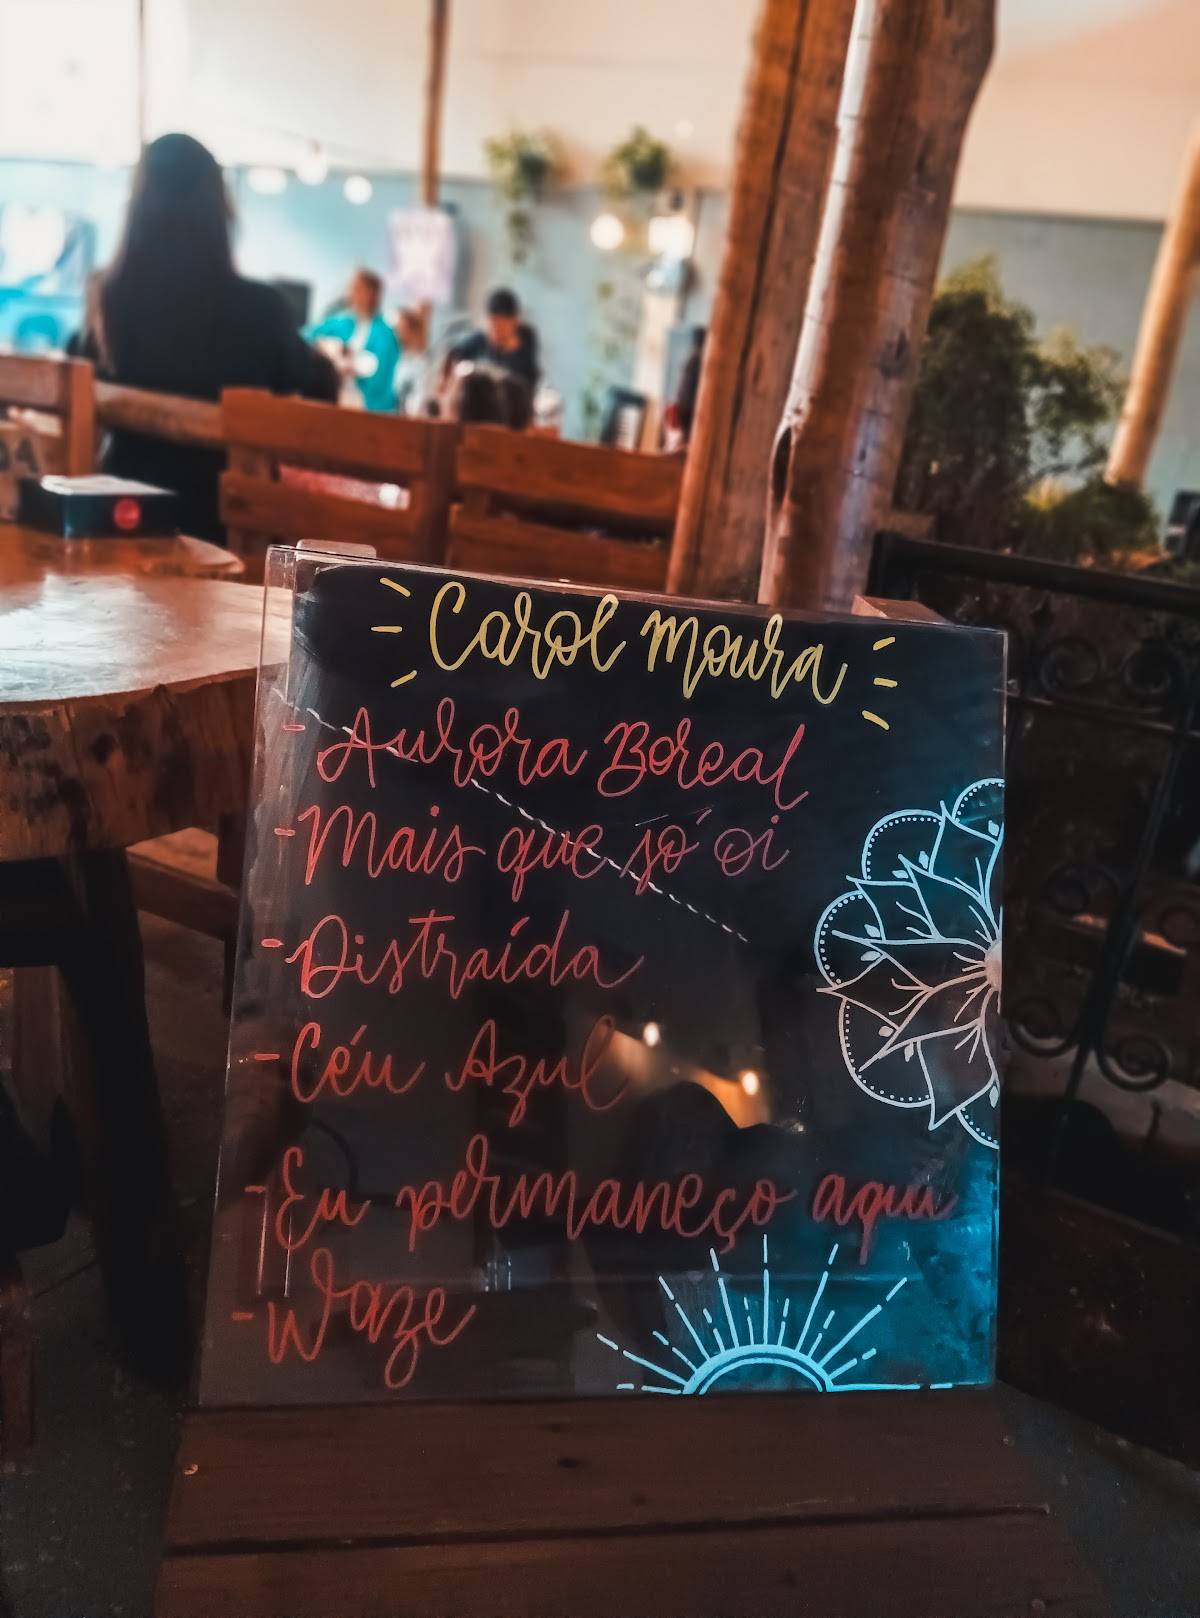 Carol Moura
- Aurora Boreal
- Mais que só oi
- Distraída
- Céu Azul
- Eu permaneço aqui
- Waze